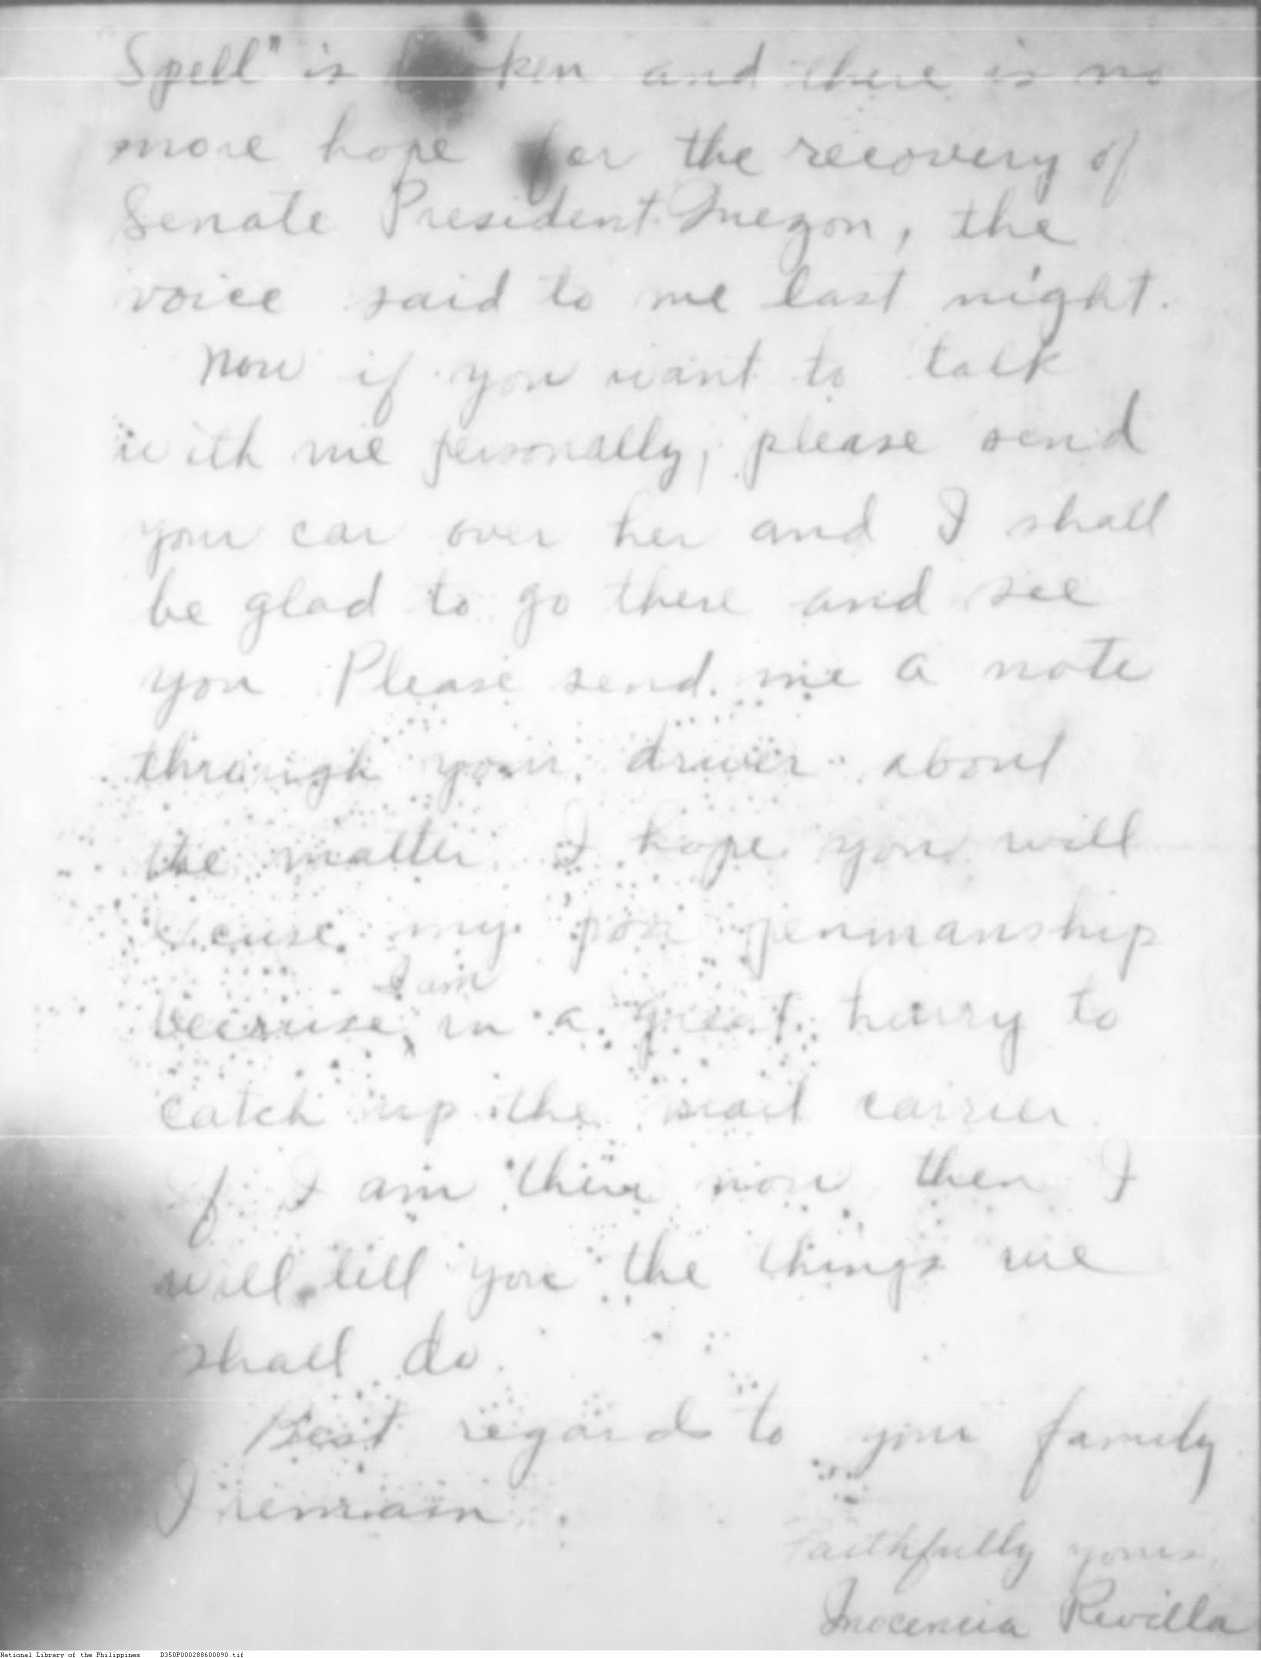 Spell" is broken and there is no
more hope for the recovery of
Senate President Quezon, the
voice said to me last night.
Now if you want to talk
with me personally, please send
your car over her and I shall
be glad to go there and see
you Please send me a note
through your driver about
the matter. I hope you will
excuse my poor penmanship
I am
because in a great hurry to
catch up the mail carrier.
If I am there now then I
will tell you the things we
shall do.
Best regards to your family
I remain.
Faithfully yours,
Inocencia Revilla
National Library of the Philippines D350P000288600090.tif